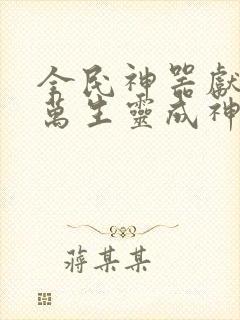 全民神器獻
萬生靈成神
蔣某某